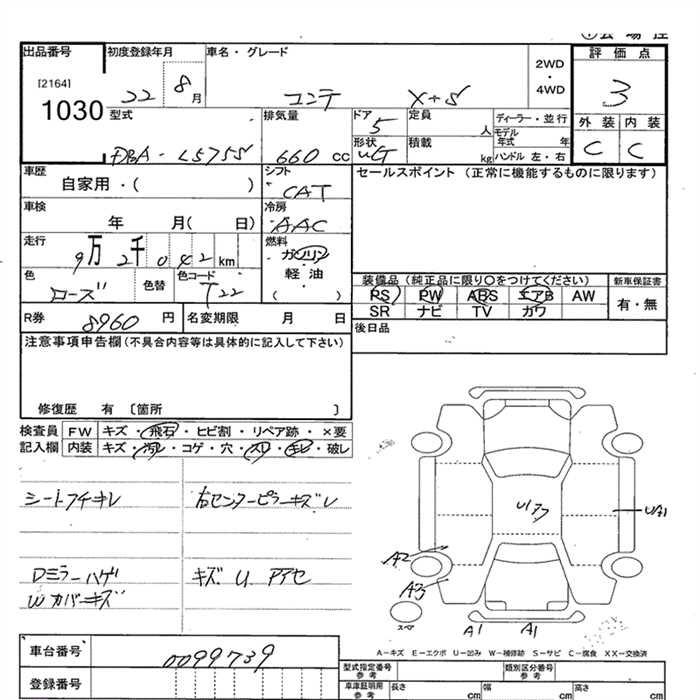 出品番号
[2164]
1030
初度登録年月
22 8月
車名・グレード
コンテ X+S
2WD
・
4WD
評価点
3
外装 内装
C C
型式
DBA-L575S
排気量
660 cc
ドア
5
形状
定員
人
積載
kg
ディーラー・並行
モデル年式 年
ハンドル 左・右
車歴
自家用・( )
シフト
CAT
セールスポイント (正常に機能するものに限ります)
車検
年 月( 日)
冷房
AAC
走行
9万2千042km
燃料
ガソリン
軽油
( )
色
ローズ
色替
色コード
T22
装備品(純正品に限り○をつけてください)
新車保証書
PS PW ABS エアB AW
SR ナビ TV カワ
有・無
R券 8960円
名変期限 月 日
後日品
注意事項申告欄(不具合内容等は具体的に記入して下さい)
修復歴 有 〔箇所 〕
検査員 FW キズ・飛石・ヒビ割・リペア跡・×要
記入欄 内装 キズ・汚レ・コゲ・穴・スリ・キレ・破レ
シートフチキレ
右センターピラーキズレ
Dミラーハゲ
キズ U アアセ
Wカバーキズ
U1アク
UA1
A2
A3
スペア
A1
A1
A-キズ E-エクボ U-凹み W-補修跡 S-サビ C-腐食 XX-交換済
車台番号
0099739
登録番号
型式指定番号
参考
類別区分番号
参考
車庫証明用
参考
長さ cm
幅 cm
高さ cm